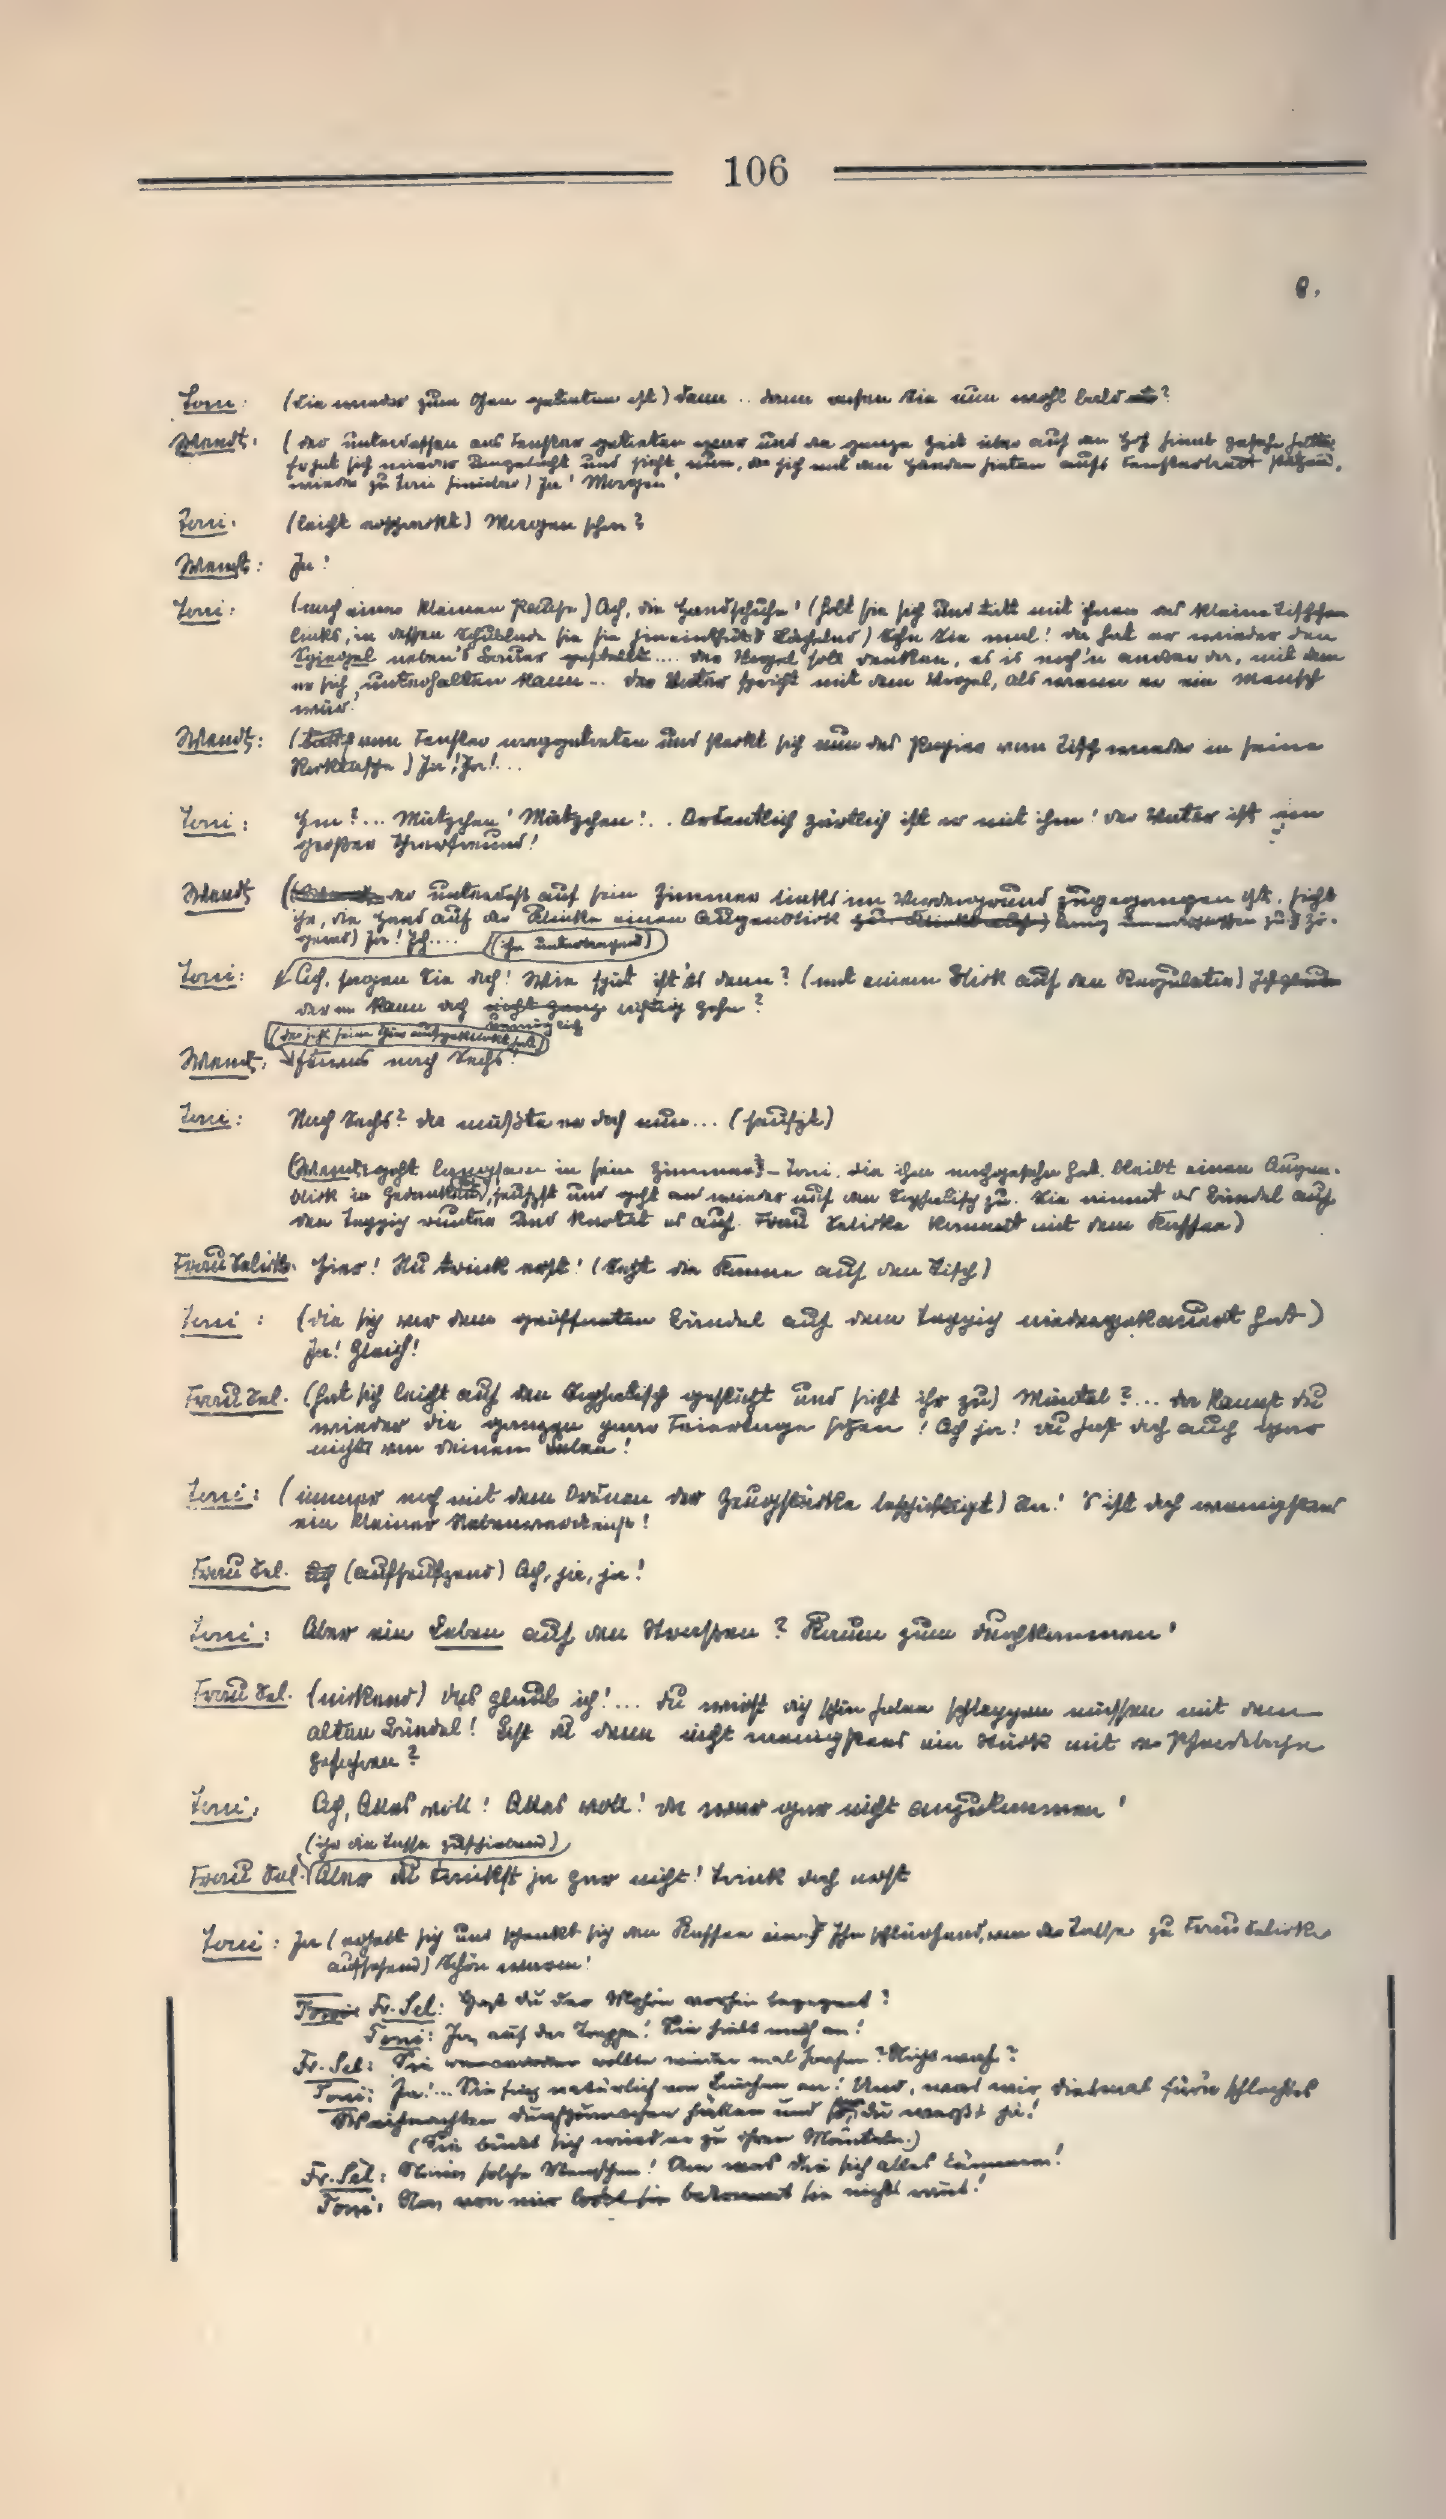 106
8.
Toni: (die wieder zum Ofen getreten ist) Dann .. dann reisen Sie nun wohl bald ?
Wendt: (der unterdessen ans Fenster getreten war und die ganze Zeit über auf den Hof hinaus gesehn hatte
hat sich wieder umgedreht und sieht nun, sich mit den Händen hinten aufs Fensterbrett stützend,
wieder zu Toni hinüber) Ja! Morgen!
Toni: (leicht erschreckt) Morgen schon?
Wendt: Ja!
Toni: (nach einer kleinen Pause) Ach, die Handschuhe! (holt sie sich und tritt mit ihnen an das kleine Tischchen
links, in dessen Schublade sie sie hineinthut. Lächelnd) Sehn Sie mal! da hat er wieder den
Spiegel neben's Bauer gestellt.... der Vogel soll denken, es is noch'n andrer da, mit dem
er sich unterhalten kann... Der Vater spricht mit dem Vogel, als wenn er ein Mensch
wär!
Wendt: ( vom Fenster weggetreten und steckt sich nun das Papier vom Tisch wieder in seine
Rocktasche) Ja! Ja!...
Toni: Hm?... Mätzchen! Mätzchen!.. Ordentlich zärtlich ist er mit ihm! Der Vater ist ein
großer Thierfreund!
Wendt ( der unterdeß auf sein Zimmer links im Vordergrund zugegangen ist, sieht
ihr, die Hand auf der Klinke einen Augenblick zu. zö-
gernd) Ja! Ich.... (ihn unterbrechend)
Toni: Ach, sagen Sie doch! Wie spät ist es denn? (mit einem Blick auf den Regulator) Ich glaube
der kann doch nicht ganz richtig gehn?
unmöglich
(der jetzt seine Thür aufgeklinkt hat)
Wendt: Etwas nach Sechs!
Toni: Nach Sechs? Da müßte er doch nun... (seufzt)
(Wendt geht langsam in sein Zimmer) – Toni, die ihm nachgesehn hat, bleibt einen Augen-
blick in Gedanken, seufzt und geht dann wieder auf den Sophatisch zu. Sie nimmt das Bündel auf
den Teppich runter und knotet es auf. Frau Selicke kommt mit dem Kaffee)
Frau Selicke. Hier! Nu trink erst! (Setzt die Kanne auf den Tisch)
Toni : (die sich vor dem geöffneten Bündel auf dem Teppich niedergekauert hat)
Ja! Gleich!
Frau Sel. (hat sich leicht auf den Sophatisch gestützt und sieht ihr zu) Mäntel?... Da kannst du
wieder die ganzen paar Feiertage sitzen! Ach ja! Du hast doch auch gar
nichts von deinem Leben!
Toni: (immer noch mit dem Ordnen der Zeugstücke beschäftigt) Na! 's ist doch wenigstens
ein kleiner Nebenverdienst!
Frau Sel. Ach (aufseufzend) Ach, ja, ja!
Toni: Aber ein Leben auf den Strassen? Kaum zum durchkommen!
Frau Sel. (nickend) das glaub ich!... Du wirst dich schön haben schleppen müssen mit dem
alten Bündel! Bist du denn nicht wenigstens ein Stück mit der Pferdebahn
gefahren?
Toni. Ach, Alles voll! Alles voll! Da war gar nicht anzukommen!
(ihr die Tasse zuschiebend)
Frau Sel: Aber du trinkst ja gar nicht! Trink doch erst
Toni: Ja (erhebt sich und schenkt sich den Kaffee ein. Ihn schlürfend, von der Tasse zu Frau Selicke
aufsehend) Schön warm!
Toni Fr. Sel: Hast du das Mohrn vorhin begegnet?
Toni: Ja, auf der Treppe! Sie hielt mich an!
Fr. Sel: Sie wollte wieder mal horchen? Nicht wahr?
Toni: Ja!... Sie fing natürlich von Linchen an! Und, was wir diesmal für'n schlechtes
Weihnachten durchzumachen hätten und so, du weißt ja!
(Sie bückt sich wieder zu ihren Mänteln.)
Fr. Sel: solche Menschen! Um was die sich alles kümmern!
Toni: Na, von mir bekommt sie nichts raus!